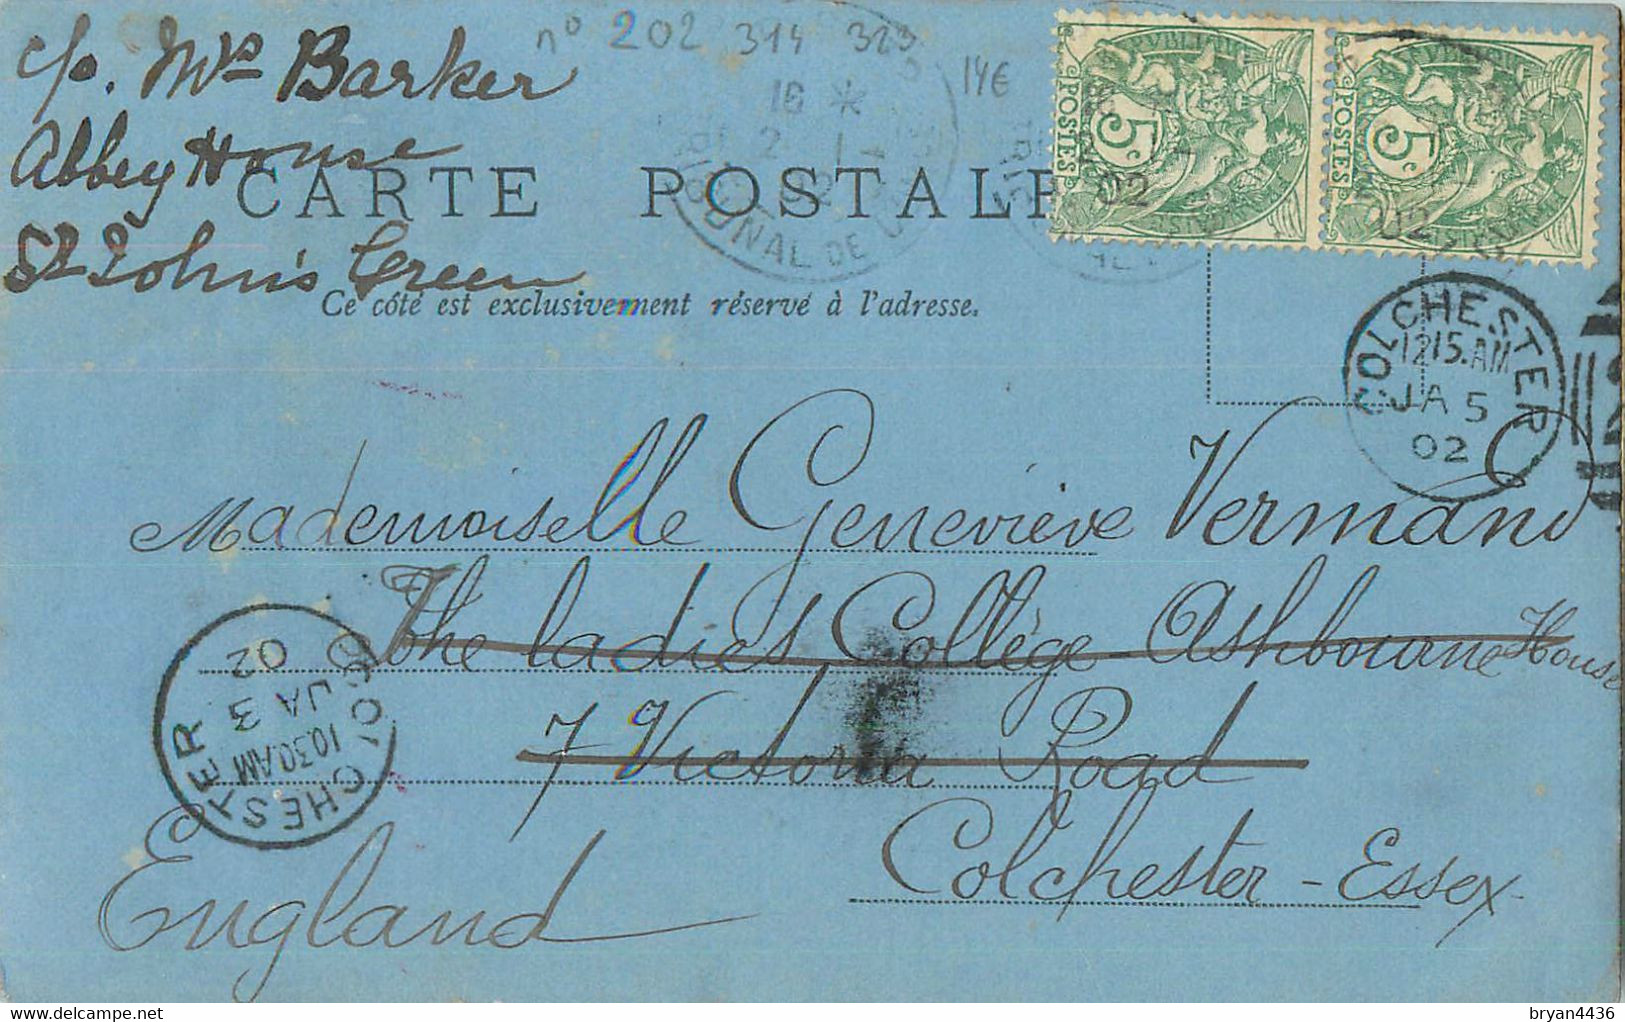 c/o. Mrs Barker
Abbey House
St John's Green
no 202 314 323
14€
CARTE POSTALE
Ce côté est exclusivement réservé à l'adresse.
16 *
2 1 -
POSTES
5c
02
POSTES
5c
02
COLCHESTER
12 15. AM
JA 5
02
Mademoiselle Geneviève Vermand
The ladies Collège Ashbourne House
7 Victoria Road
Colchester - Essex
England
COLCHESTER
10.30 AM
JA 3
02
bryan4436